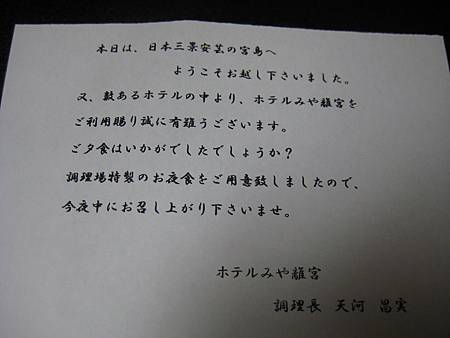 本日は、日本三景安芸の宮島へ
ようこそお越し下さいました。
又、数あるホテルの中より、ホテルみや離宮を
ご利用賜り誠に有難うございます。
ご夕食はいかがでしたでしょうか？
調理場特製のお夜食をご用意致しましたので、
今夜中にお召し上がり下さいませ。
ホテルみや離宮
調理長 天河 昌実